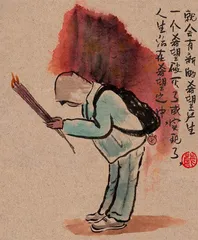 人生活在希望之中
一个希望破灭了或实现了
就会有新的希望产生